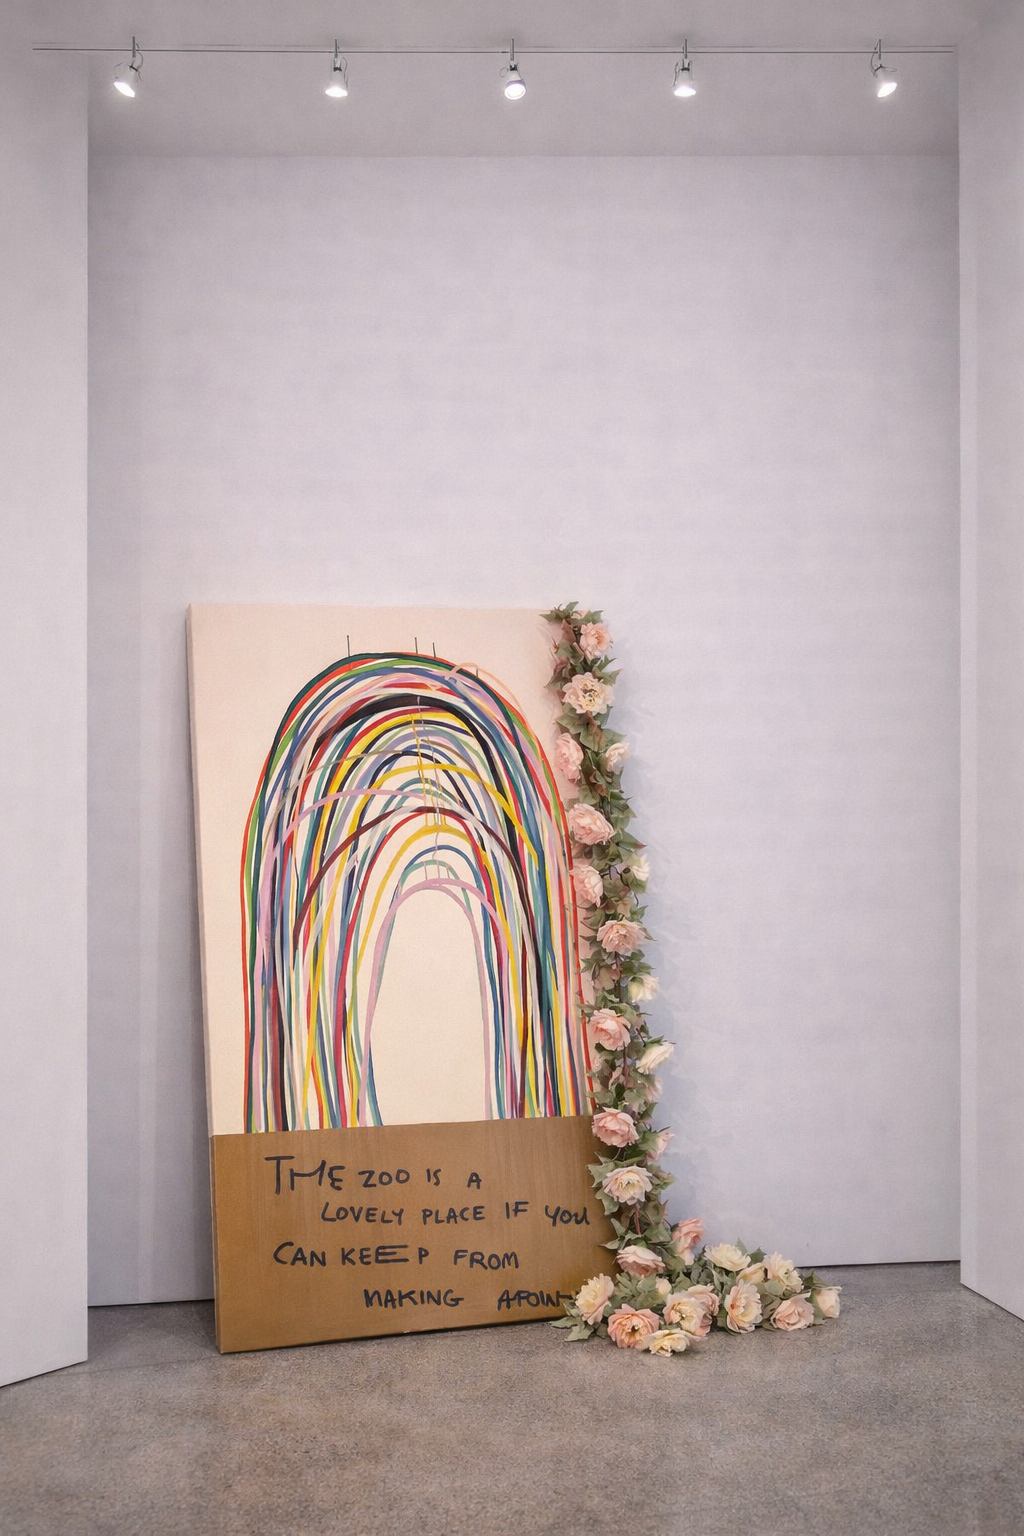 THE ZOO IS A
LOVELY PLACE IF YOU
CAN KEEP FROM
MAKING